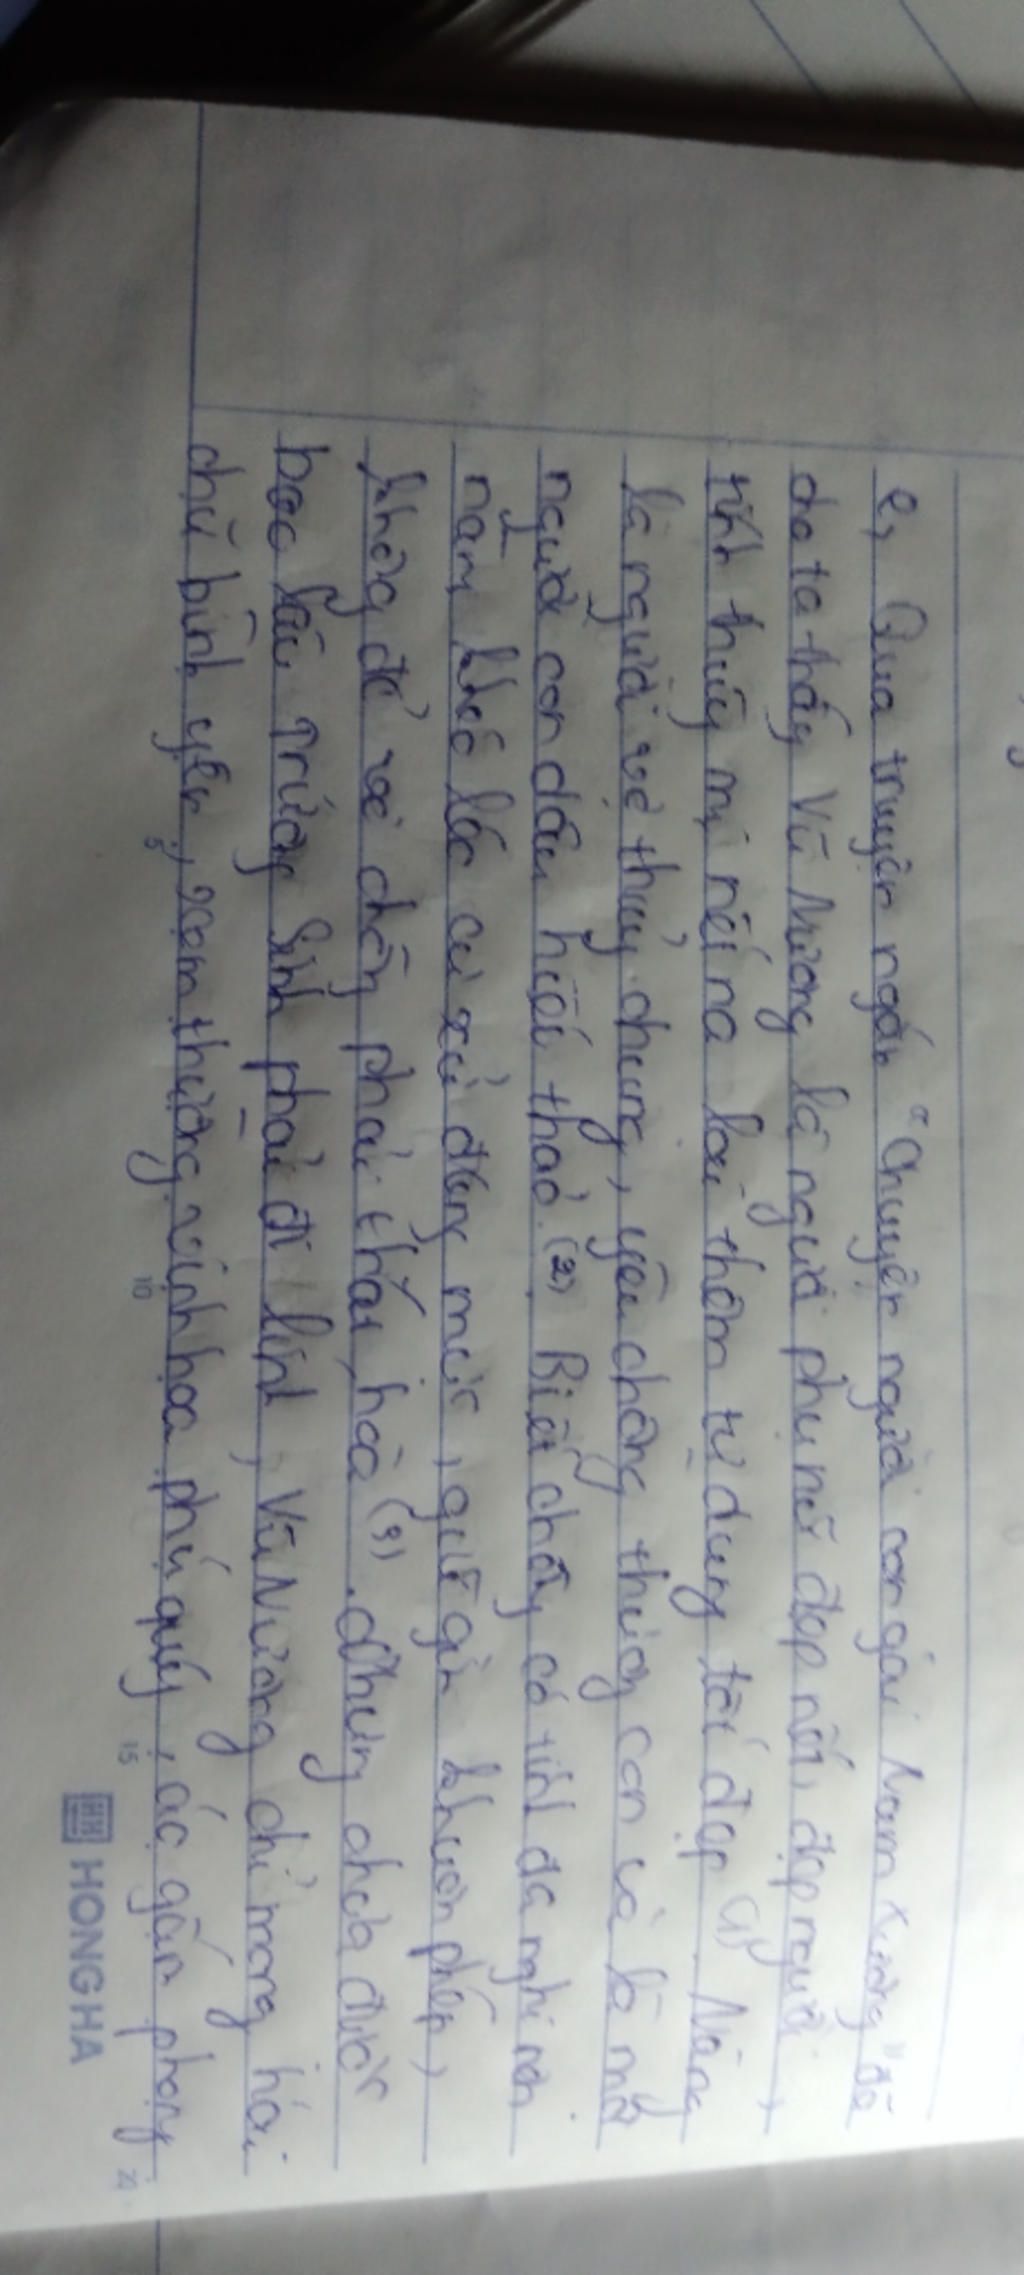 e, Qua truyện ngắn "Chuyện người con gái Nam Xương" đã
cho ta thấy Vũ Nương là người phụ nữ đẹp nết, đẹp người,
tính thùy mị nết na lại thêm tư dung tốt đẹp (1). Nàng
là người vợ thủy chung, yêu chồng thương con và là một
người con dâu hiếu thảo. (2) Biết chồng có tính đa nghi nên
nàng khéo léo cư xử đúng mực, giữ gìn khuôn phép,
không để vợ chồng phải thất hòa (3). Nhưng chưa được
bao lâu Trương Sinh phải đi lính, Vũ Nương chỉ mong hai
chữ bình yên, xem thường vinh hoa phú quý, ác gấn phong
5 10 15 20
HONG HA